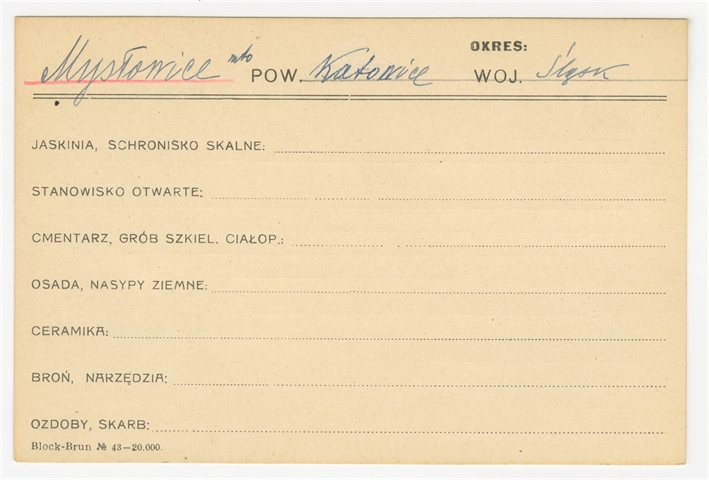 OKRES:
Mysłowice mto POW. Katowice WOJ. Śląsk
JASKINIA, SCHRONISKO SKALNE:
STANOWISKO OTWARTE:
CMENTARZ, GRÓB SZKIEL. CIAŁOP.:
OSADA, NASYPY ZIEMNE:
CERAMIKA:
BROŃ, NARZĘDZIA:
OZDOBY, SKARB:
Block-Brun № 43—20.000.